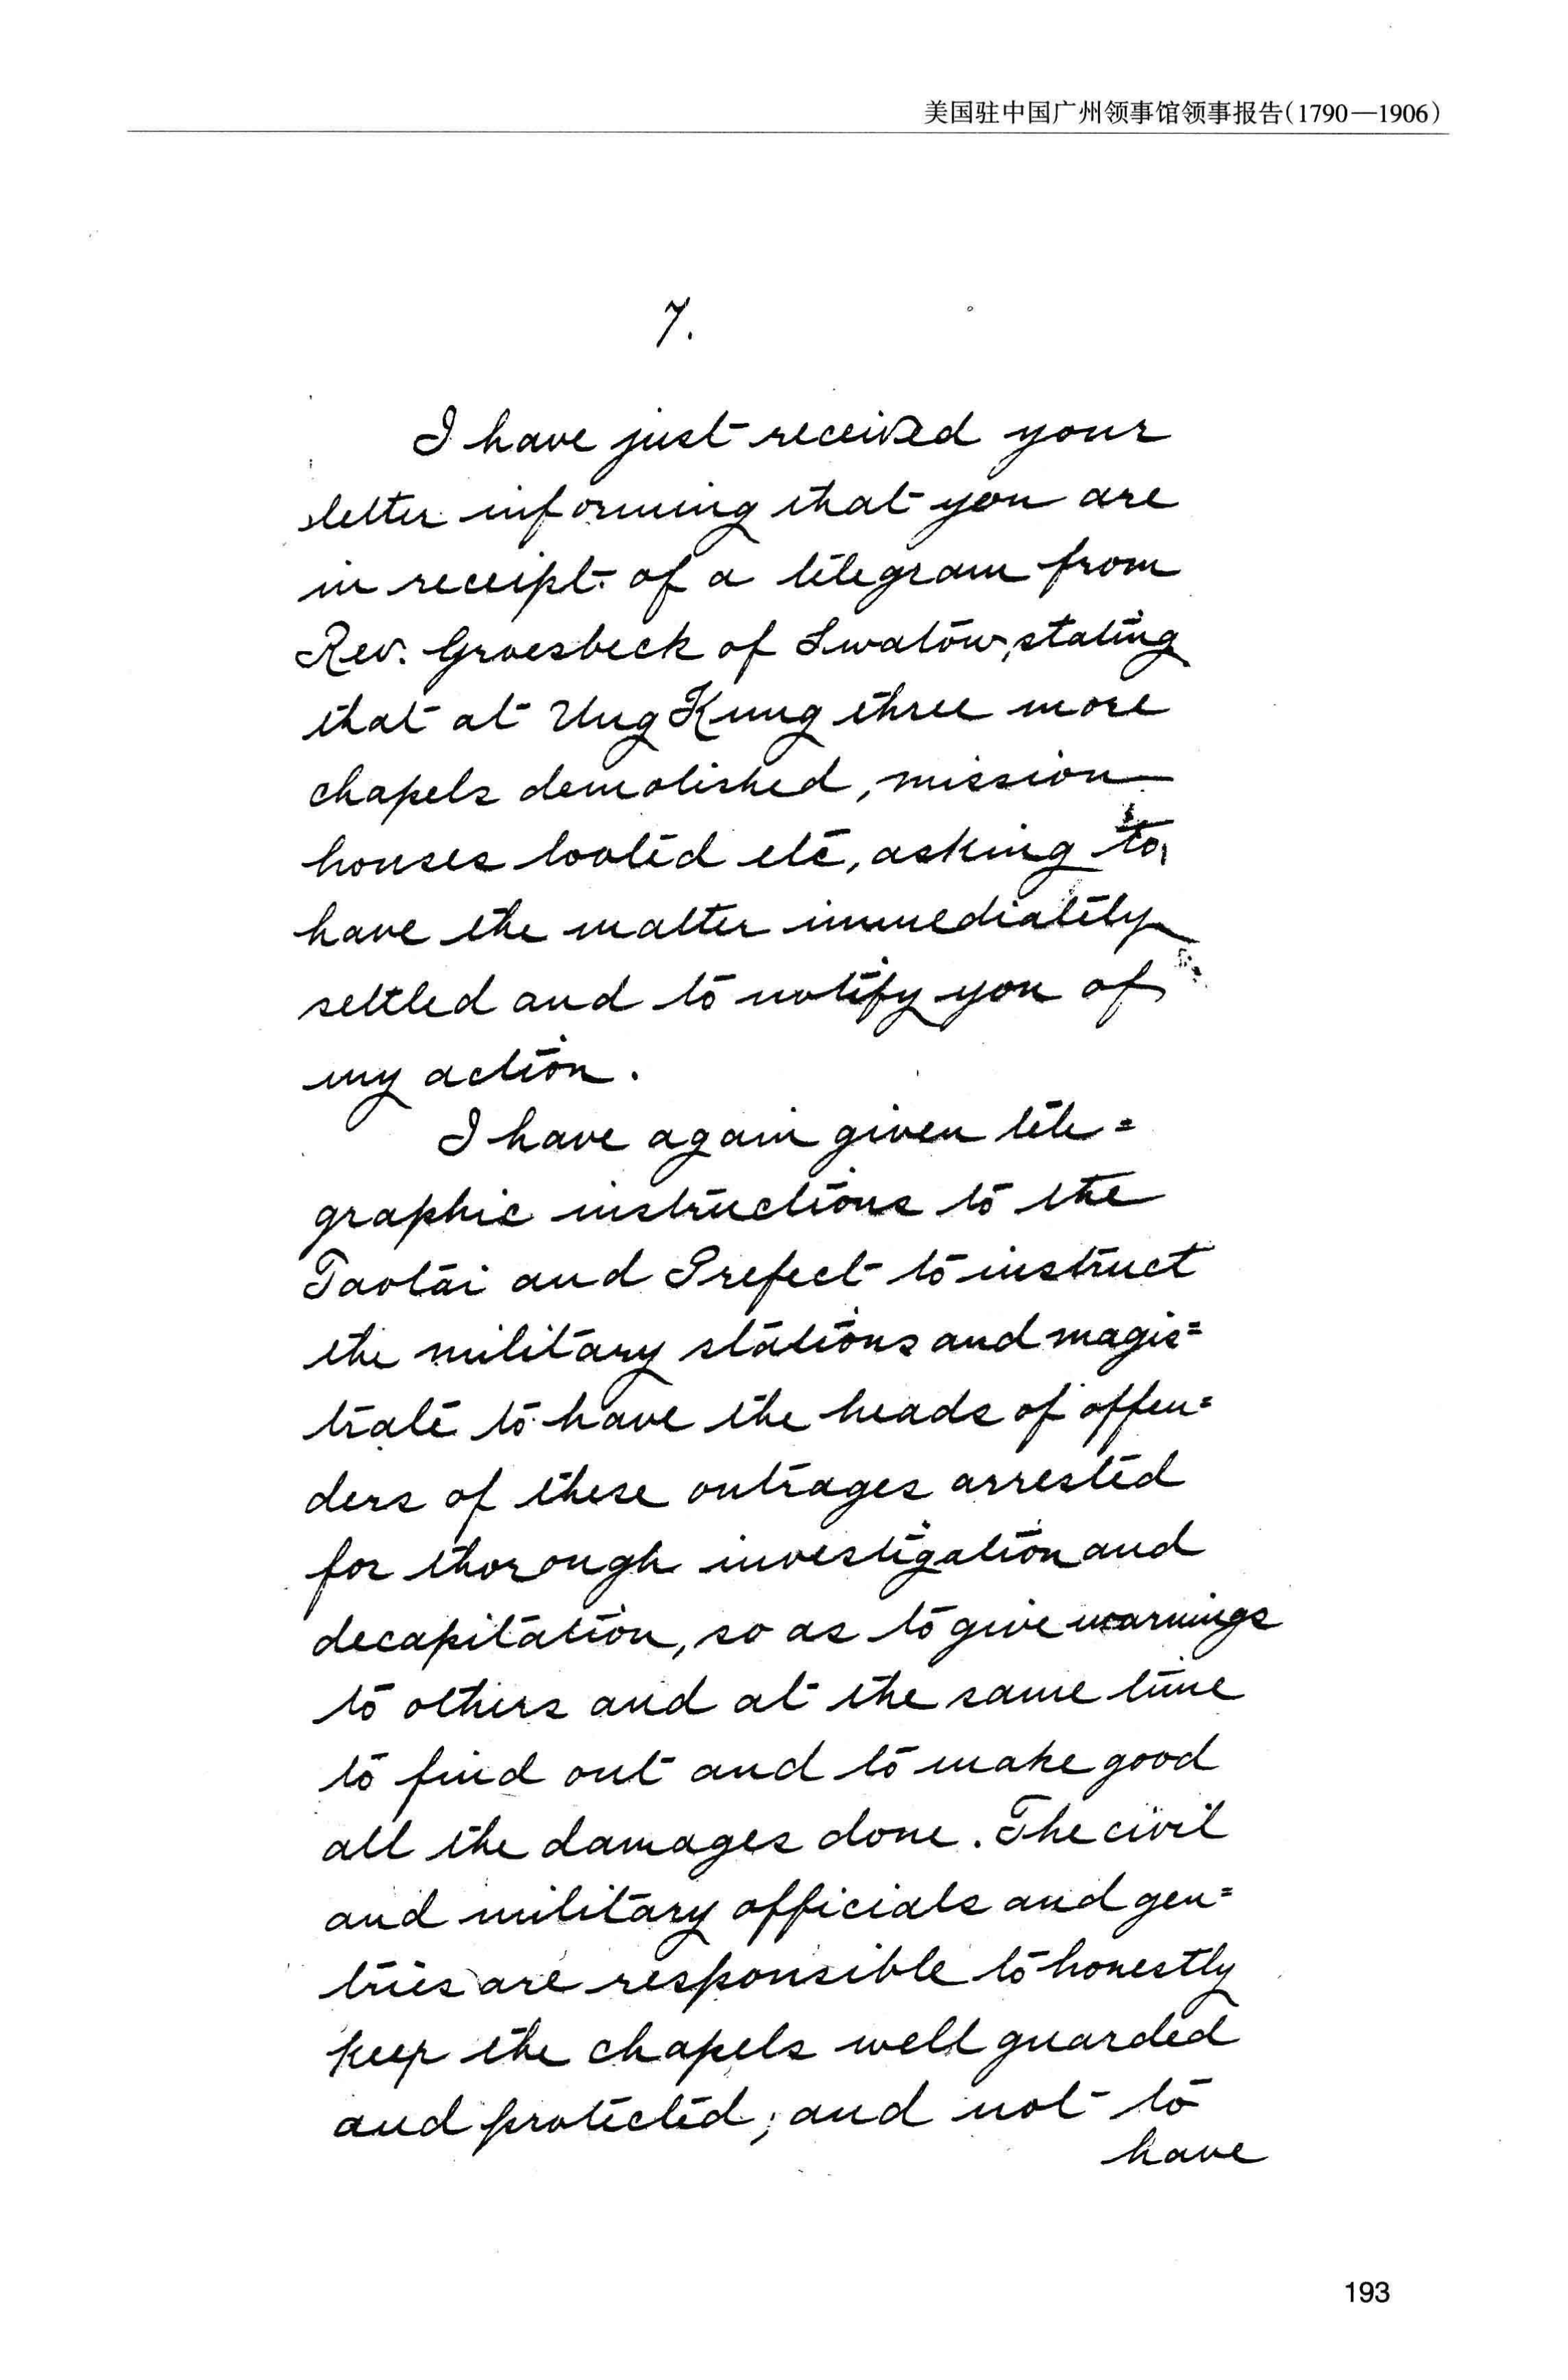 美国驻中国广州领事馆领事报告(1790—1906)
7.
I have just received your
letter informing that you are
in receipt of a telegram from
Rev. Groesbeck of Swatow, stating
that at Ung Kung three more
chapels demolished, mission
houses looted etc, asking to
have the matter immediately
settled and to notify you of
my action.
I have again given tele=
graphic instructions to the
Taotai and Prefect to instruct
the military stations and magis=
trate to have the heads of offen=
ders of these outrages arrested
for thorough investigation and
decapitation, so as to give warnings
to others and at the same time
to find out and to make good
all the damages done. The civil
and military officials and gen=
tries are responsible to honestly
keep the chapels well guarded
and protected, and not to
have
193